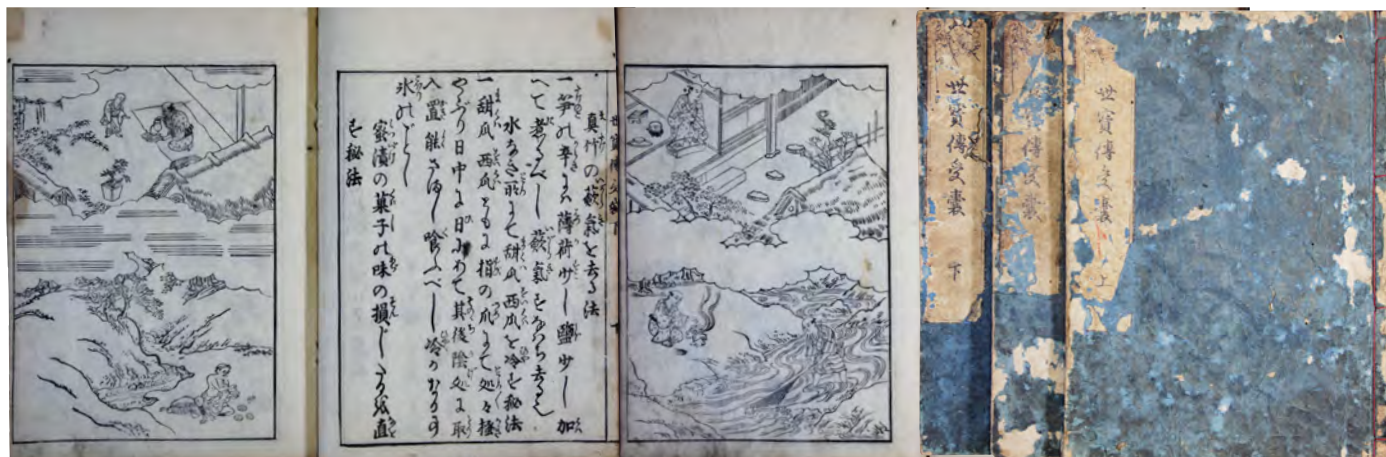 真竹の蘞氣を去る法
一笋の辛きハ薄荷少し鹽少し加
へて煮るべし蘞氣 去る
水なき所にて甜瓜西瓜を冷す秘法
一甜瓜西瓜ともに指の爪にて処々掻
やぶり日中に日にあてて其後陰処に取
入置能さまし喰ふべし冷かなる事
氷のごとし
蜜漬の菓子の味の損じたるを直
す秘法
世寶傳受囊 上
寶傳受囊
世寶傳受囊 下